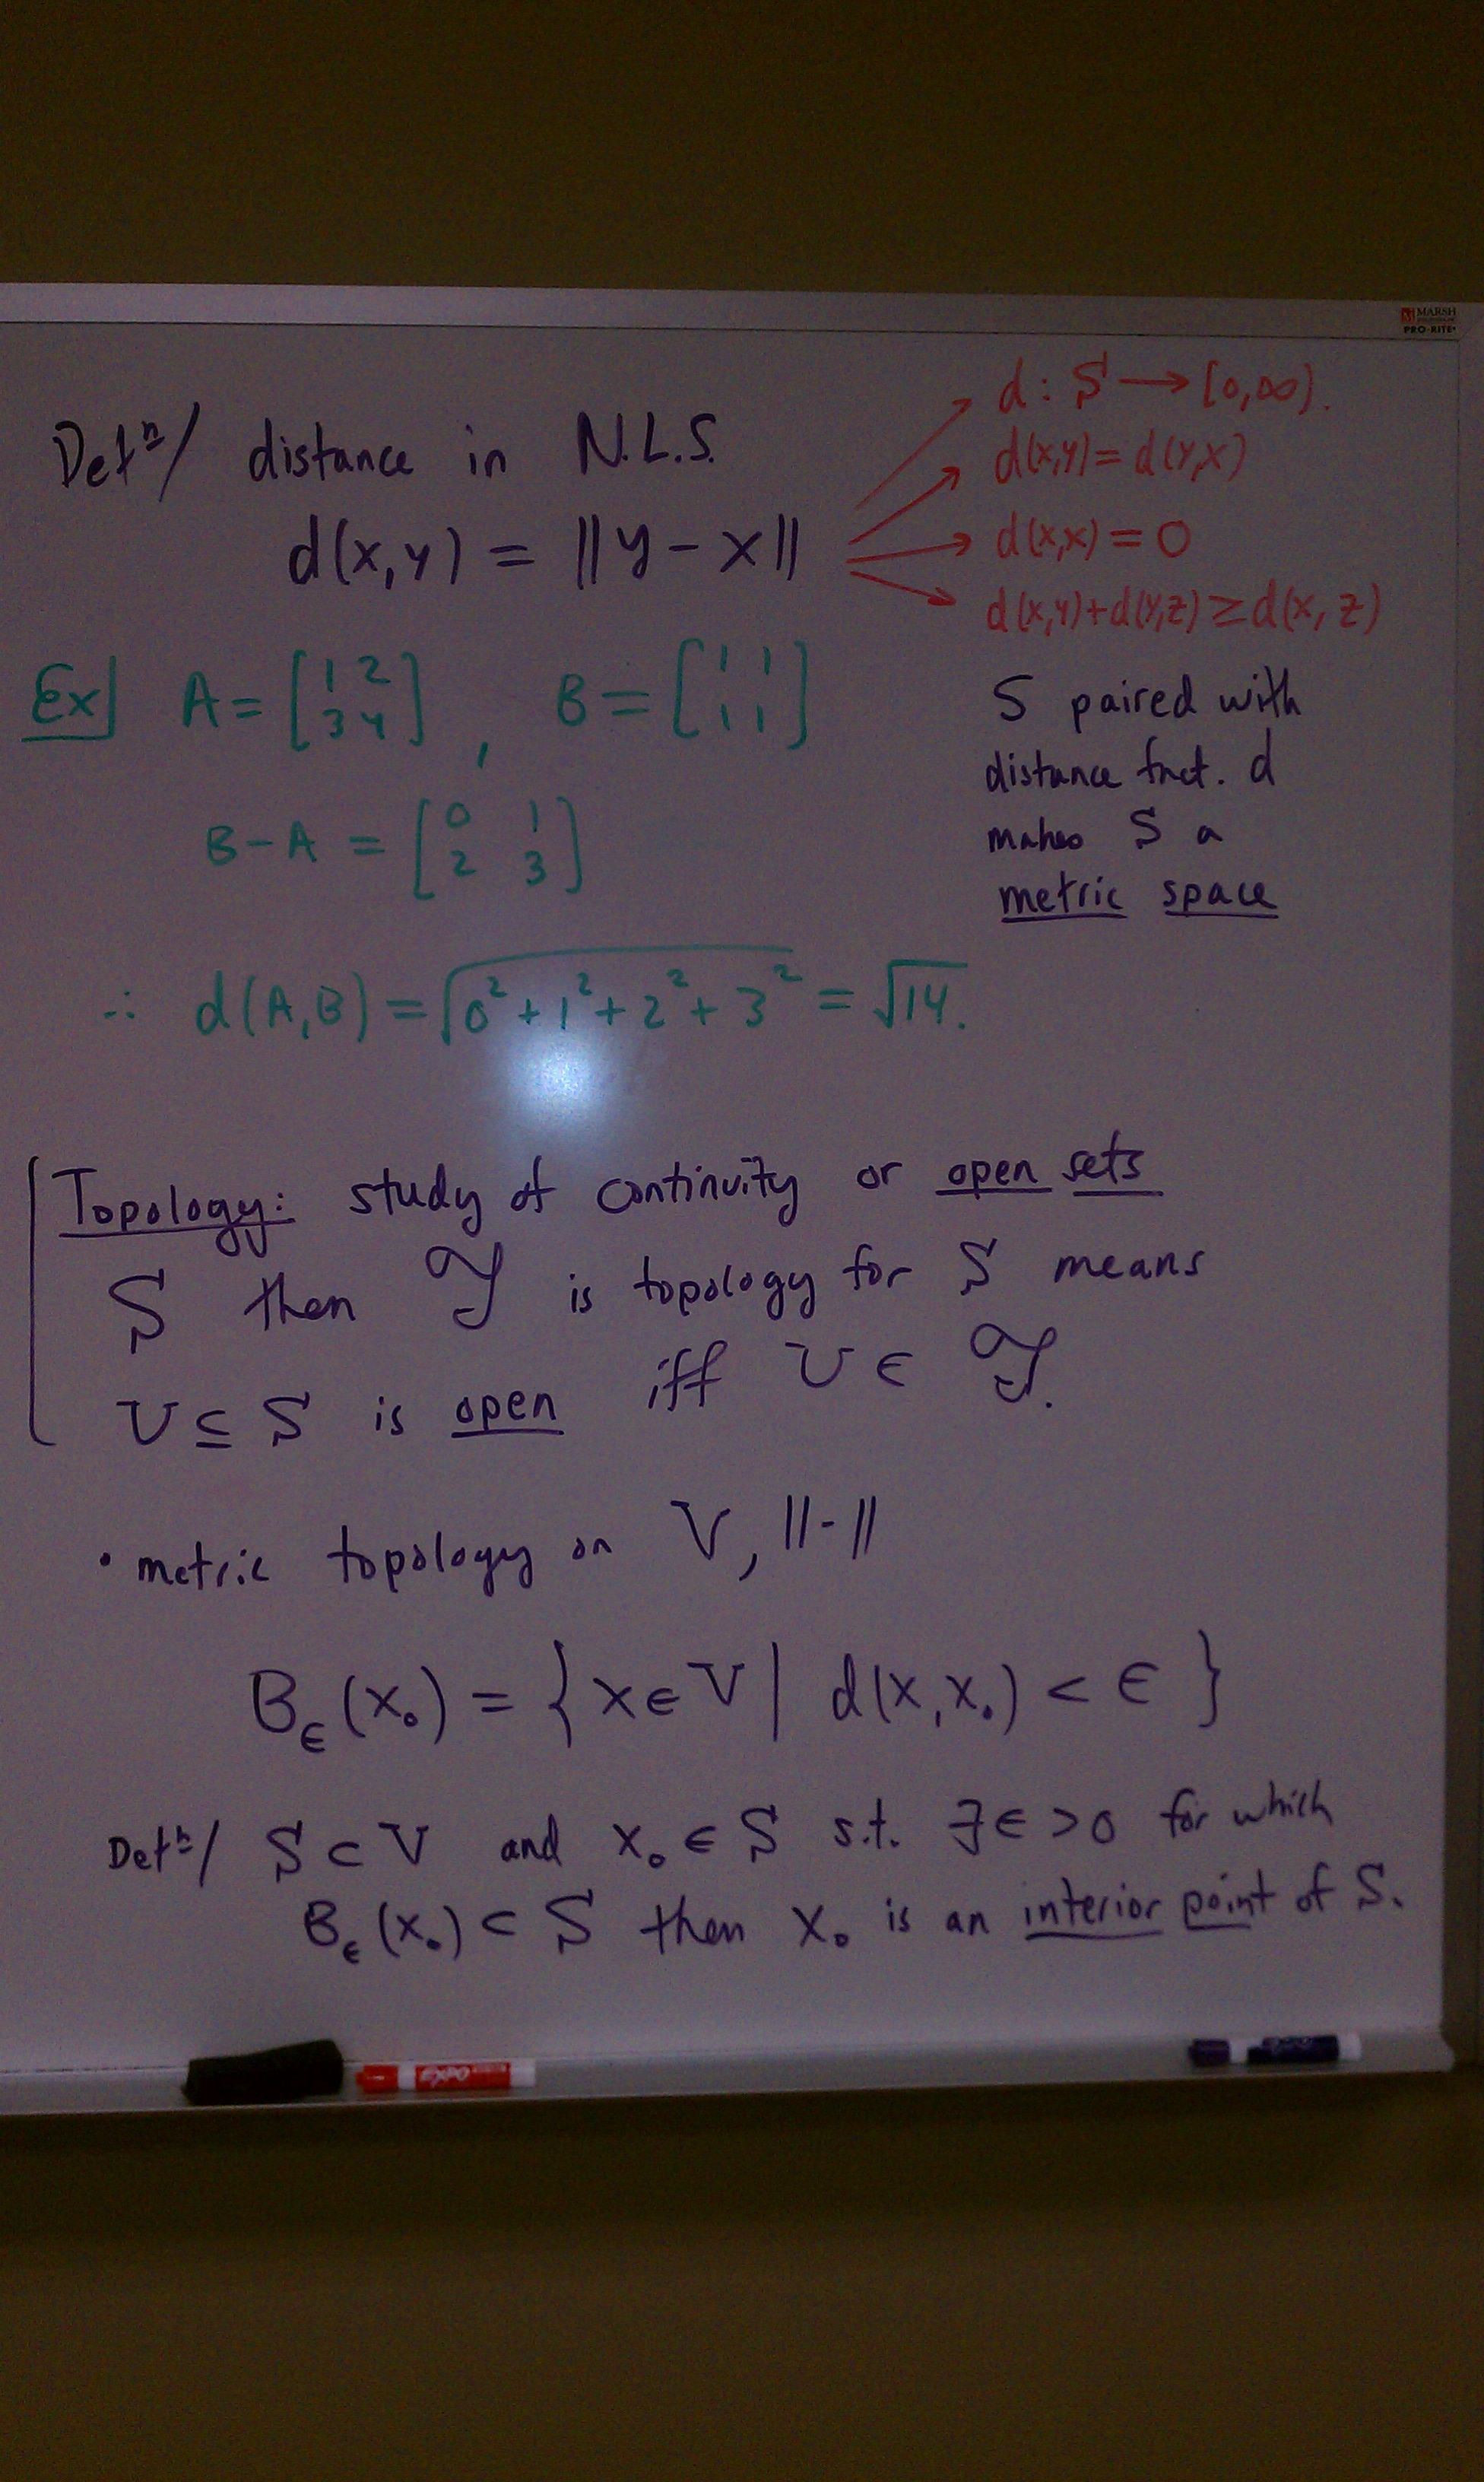 MARSH
PRO-RITE
Defⁿ/ distance in N.L.S.
d(x,y) = ||y - x||
d : S → [0,∞).
d(x,y) = d(y,x)
d(x,x) = 0
d(x,y)+d(y,z) ≥ d(x,z)
S paired with
distance fnct. d
makes S a
metric space
Ex] A = [1 2
3 4] , B = [1 1
1 1]
B - A = [0 1
2 3]
∴ d(A,B) = √(0² + 1² + 2² + 3²) = √14.
Topology: study of continuity or open sets
S then 𝒯 is topology for S means
U ⊆ S is open iff U ∈ 𝒯.
• metric topology on V, ||·||
B_ε(x₀) = { x ∈ V | d(x,x₀) < ε }
Defⁿ/ S ⊂ V and x₀ ∈ S s.t. ∃ ε > 0 for which
B_ε(x₀) ⊂ S then x₀ is an interior point of S.